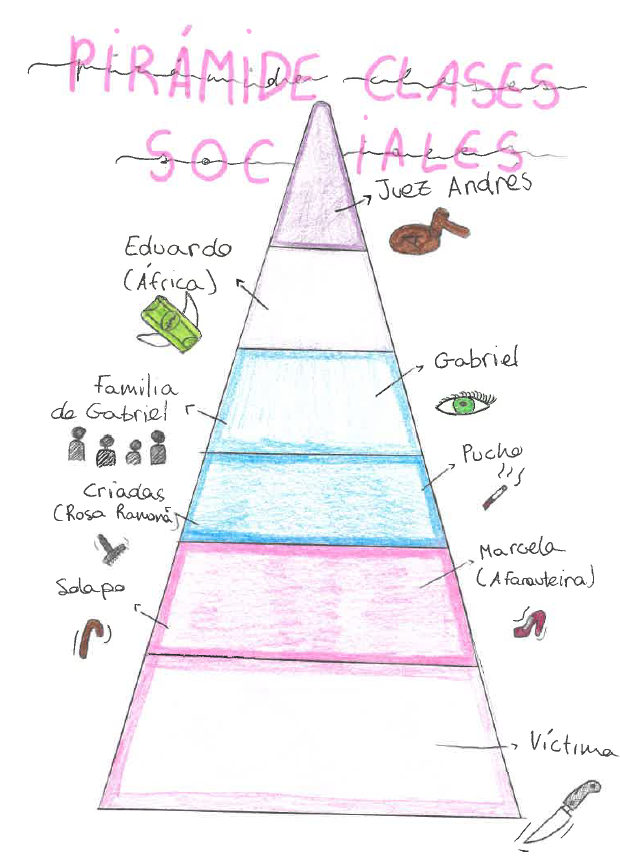 PIRÁMIDE CLASES
pirámide clases
SOCIALES
sociales
Juez Andres
Eduardo
(África)
Gabriel
Familia
de Gabriel
Pucho
Criadas
(Rosa Ramona)
Marcela
(Afarauteira)
Solapo
Víctima